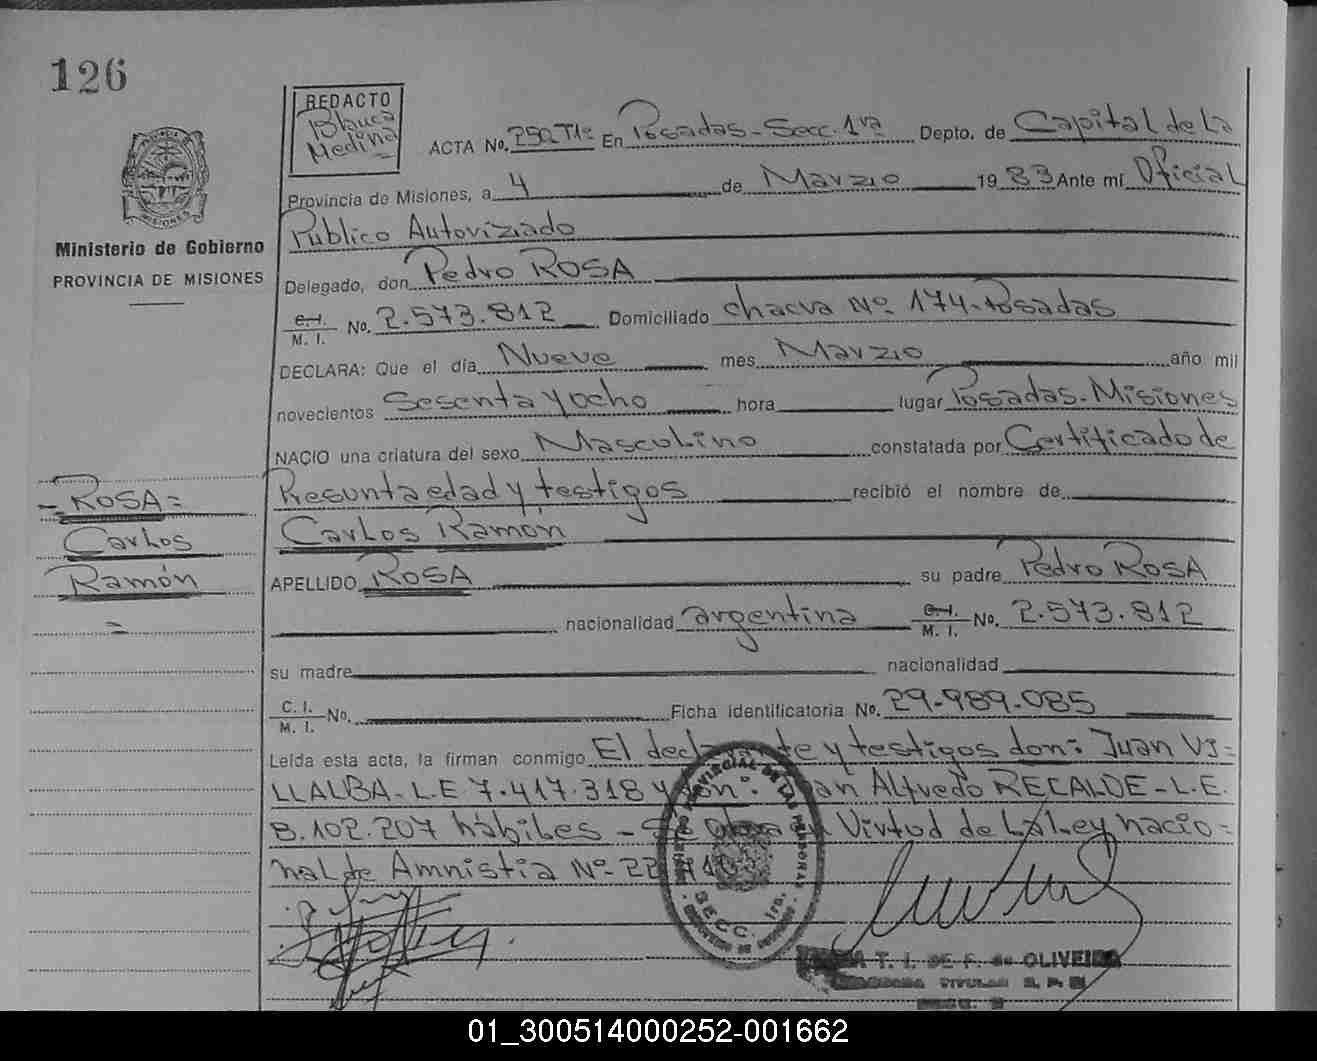 126
REDACTO
Blanca
Medina
ACTA No. 250 T1º En Posadas - Secc. 1ra Depto. de Capital de La
Provincia de Misiones, a 4 de Marzo 1983 Ante mí Oficial
Público Autorizado
MISIONES
Ministerio de Gobierno
PROVINCIA DE MISIONES
Delegado, don Pedro ROSA
C.I. M. I. No. 2.573.812 Domiciliado chacra Nº 174-Posadas
DECLARA: Que el día Nueve mes Marzo año mil
novecientos Sesenta y ocho hora lugar Posadas-Misiones
NACIO una criatura del sexo Masculino constatada por Certificado de
Presunta edad y testigos recibió el nombre de
Carlos Ramón
- ROSA =
Carlos
Ramón
=
APELLIDO ROSA su padre Pedro ROSA
nacionalidad argentina C.I. M. I. No. 2.573.812
su madre nacionalidad
C. I. M. I. No. Ficha identificatoria No. 29.989.085
Leída esta acta, la firman conmigo El declarante y testigos don: Juan VI=
LLALBA - L.E 7.417.318 y don: Alfredo RECALDE - L.E.
8.102.207 hábiles - Virtud de la Ley nacio=
nal de Amnistía Nº 22
PROVINCIAL DE LAS PERSONAS
SECC. 1ra.
T. I. DE F. de OLIVEIRA
TITULAR R. P.
SECC.
01_300514000252-001662